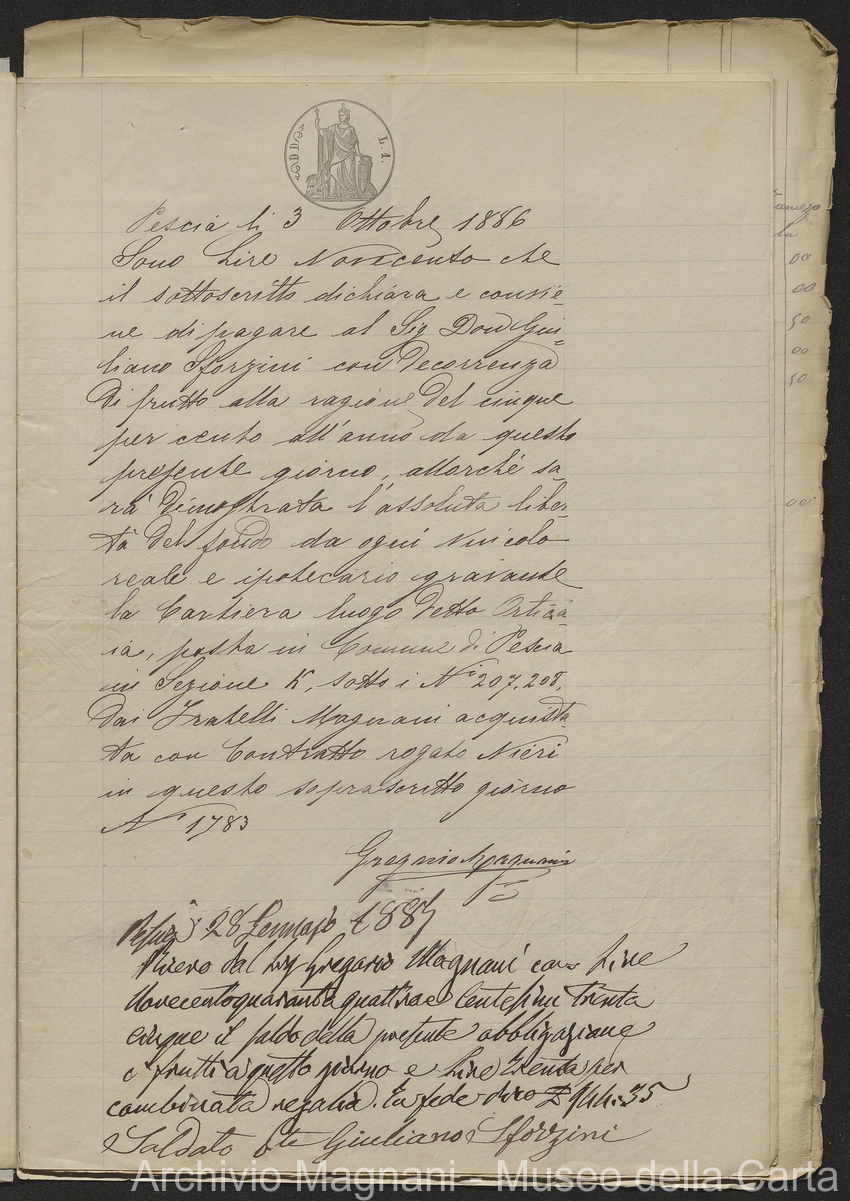 L. 1.
Pescia li 3 Ottobre 1886
Sono Lire Novecento che
il sottoscritto dichiara e convie-
ne di pagare al Sig Don Giu=
liano Sforzini con decorrenza
di frutto alla ragione del cinque
per cento all'anno da questo
presente giorno, allorchè sa-
rà dimostrata l'assoluta liber-
tà del fondo da ogni vincolo
reale e ipotecario gravante
la Cartiera luogo detto
ia, posta in Comune di Pescia
in Sezione K, sotto i Ni 207. 208,
dai Fratelli Magnani acquista-
ta con Contratto rogato Nieri
in questo soprascritto giorno
N 1783
Gregorio Magnani
Pescia 28 Gennajo 1887
Ricevo dal Sig Gregorio Magnani Lire
Novecentoquarantaquattro e Centesimi trenta
cinque il saldo della presente obbligazione
e frutti a questo giorno e Lire trenta per
combinata regalia. In fede dico £ 944:35
Saldato Giuliano Sforzini
amezo
la
00
00
50
00
50
00
Archivio Magnani - Museo della Carta